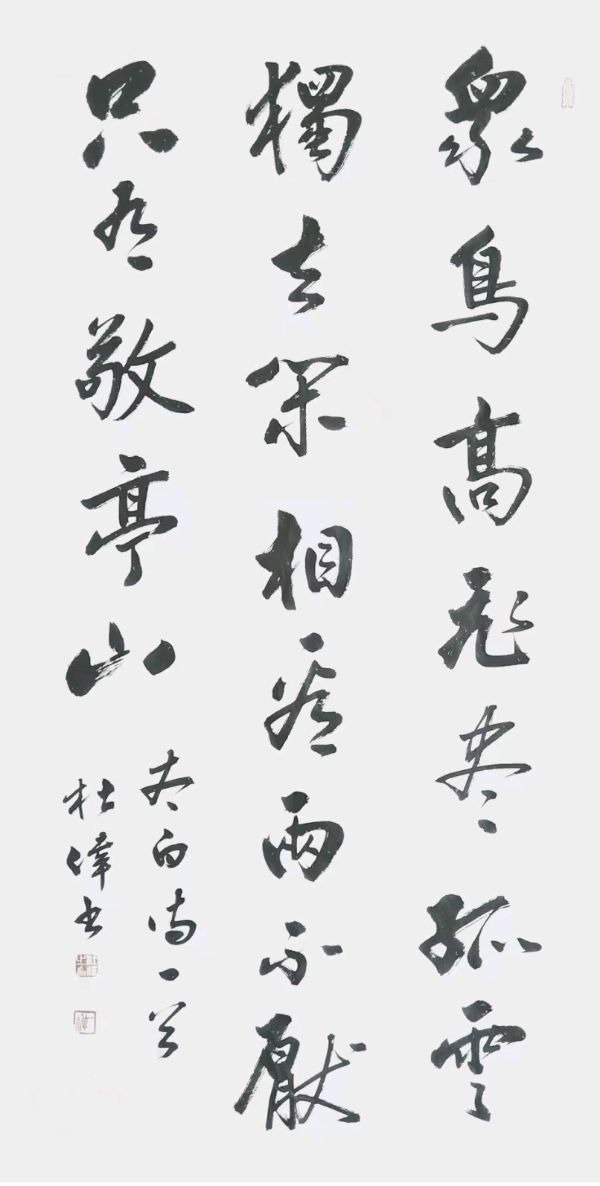 衆鳥高飛盡孤雲
獨去閑相看兩不厭
只有敬亭山
太白詩一首
杜偉書